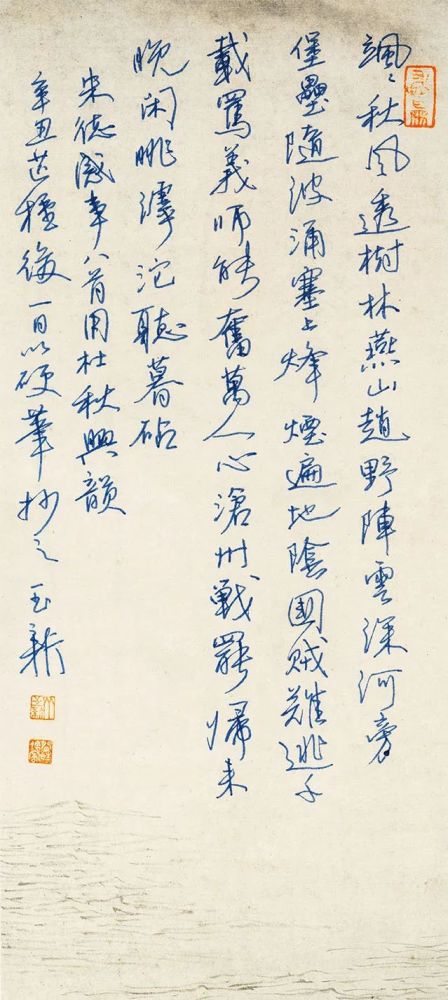 颯々秋风透樹林燕山趙野陣雲深河旁
堡壘隨波涌塞上烽煙遍地陰國賊難逃千
載罵義師能奮萬人心滄州戰罷歸来
晚闲眺滹沱聽暮砧
朱德感事八首用杜秋興韻
辛丑芒種後一日以硬筆抄之玉